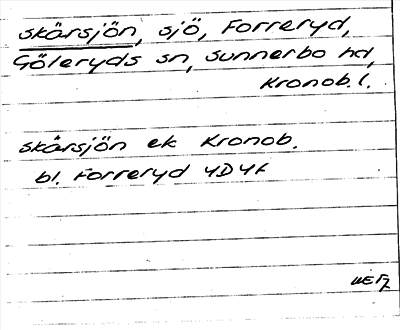 Skårsjön, sjö, Forreryd,
Göteryds sn, Sunnerbo hd,
Kronob. l.
Skårsjön ek Kronob.
bl. Forreryd 4D4f